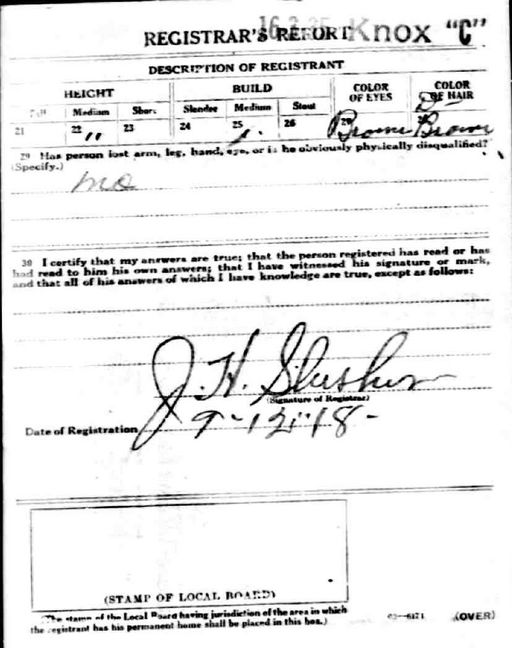 REGISTRAR'S REPORT Knox "C"
DESCRIPTION OF REGISTRANT
HEIGHT BUILD COLOR OF EYES COLOR OF HAIR
Tall Medium Short Slender Medium Stout
21 22 23 24 25 26 Brown Brown
29 Has person lost arm, leg, hand, eye, or is he obviously physically disqualified?
(Specify.)
no
30 I certify that my answers are true; that the person registered has read or has
had read to him his own answers; that I have witnessed his signature or mark,
and that all of his answers of which I have knowledge are true, except as follows:
J. H. Slusher
(Signature of Registrar)
Date of Registration 9-12-18-
(STAMP OF LOCAL BOARD)
(The stamp of the Local Board having jurisdiction of the area in which
the registrant has his permanent home shall be placed in this box.)
(OVER)